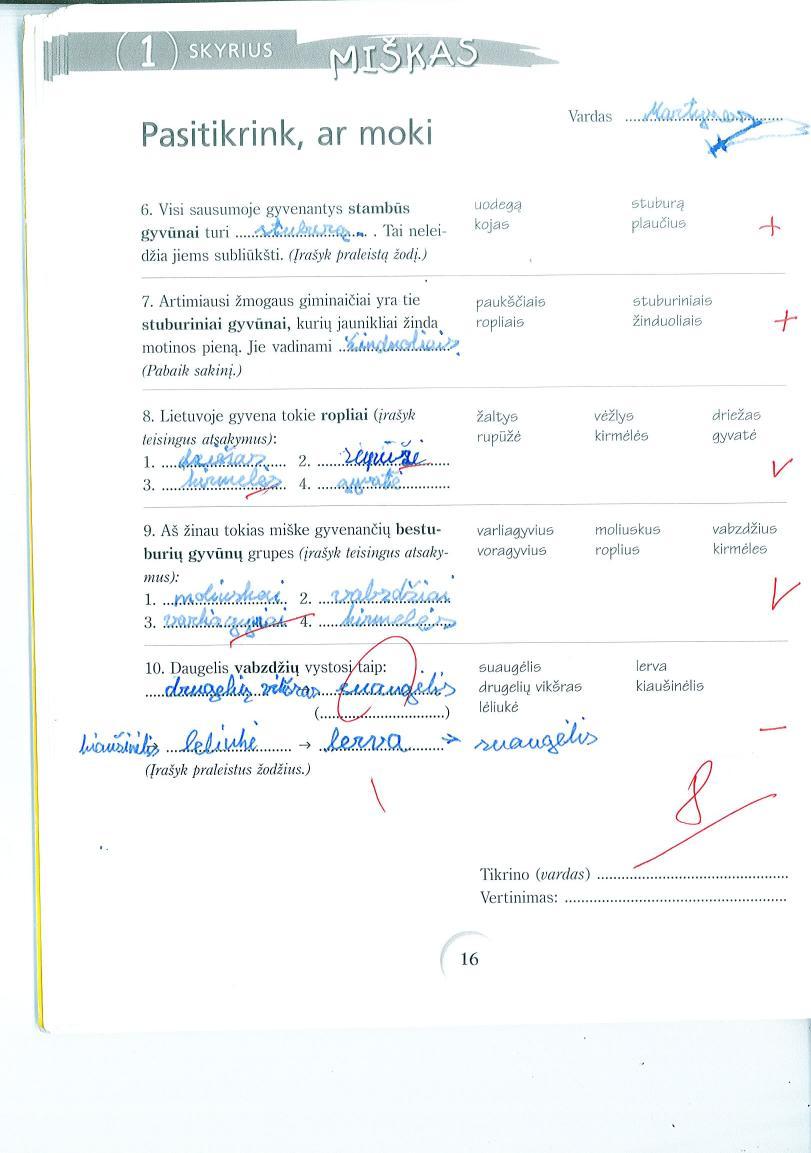 1 SKYRIUS MIŠKAS
Pasitikrink, ar moki
Vardas Martynas
6. Visi sausumoje gyvenantys stambūs
gyvūnai turi stuburą. . Tai nelei-
džia jiems subliūkšti. (Įrašyk praleistą žodį.)
uodegą stuburą
kojas plaučius
+
7. Artimiausi žmogaus giminaičiai yra tie
stuburiniai gyvūnai, kurių jaunikliai žinda
motinos pieną. Jie vadinami žinduoliais.
(Pabaik sakinį.)
paukščiais stuburiniais
ropliais žinduoliais
+
8. Lietuvoje gyvena tokie ropliai (įrašyk
teisingus atsakymus):
1. driežas 2. rupūžė
3. kirmėlės 4. gyvatė
žaltys vėžlys driežas
rupūžė kirmėlės gyvatė
9. Aš žinau tokias miške gyvenančių bestu-
burių gyvūnų grupes (įrašyk teisingus atsaky-
mus):
1. moliuskai 2. vabzdžiai
3. varliagyviai 4. kirmėlės
varliagyvius moliuskus vabzdžius
voragyvius roplius kirmėles
10. Daugelis vabzdžių vystosi taip:
drugelių vikšras suaugėlis
(....................)
kiaušinėlis → leliukė → lerva → suaugėlis
(Įrašyk praleistus žodžius.)
suaugėlis lerva
drugelių vikšras kiaušinėlis
lėliukė
–
8
Tikrino (vardas)
Vertinimas:
16